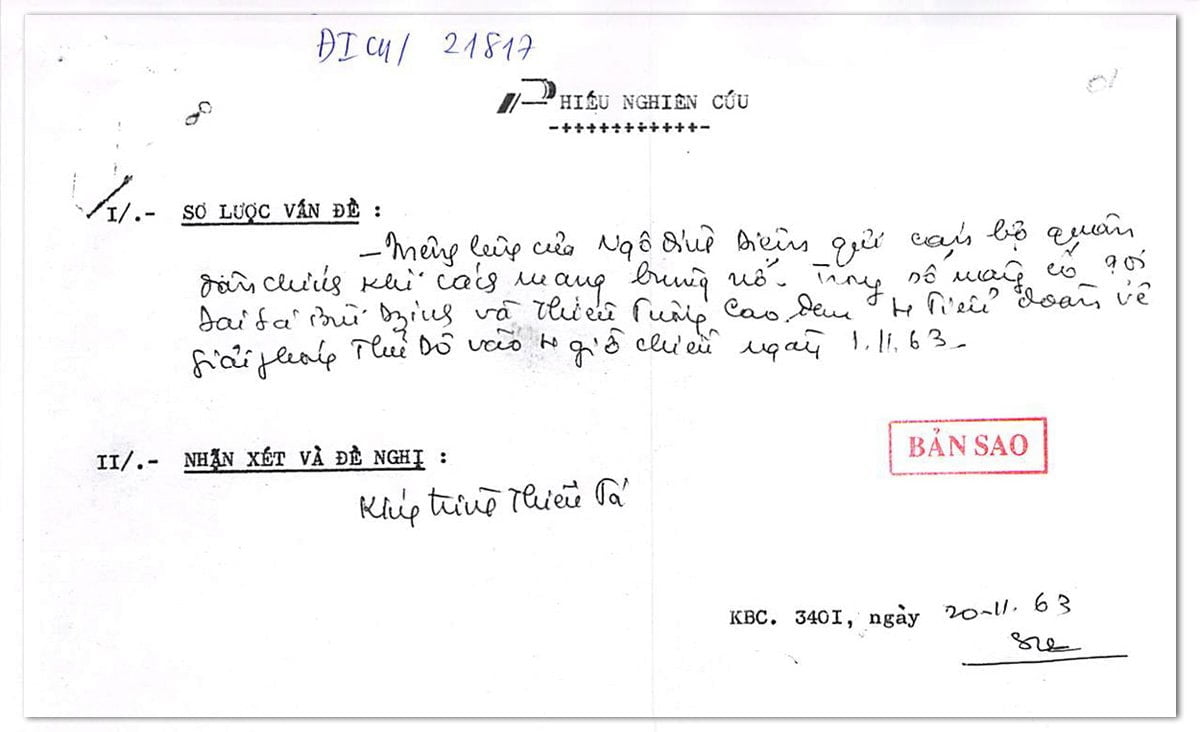 ĐI CII/ 21817
PHIẾU NGHIÊN CỨU
-++++++++++++-
I/.- SƠ LƯỢC VẤN ĐỀ :
- Mệnh lệnh của Ngô Đình Diệm gửi cán bộ quân
dân chính khi cách mạng bùng nổ. Trong số mạng có gọi
Đại tá Bùi Dzinh và Thiếu Tướng Cao đem 4 Tiểu đoàn về
giải phóng Thủ Đô vào 4 giờ chiều ngày 1.11.63-
BẢN SAO
II/.- NHẬN XÉT VÀ ĐỀ NGHỊ :
Kính trình Thiếu Tá
KBC. 340I, ngày 20-11.63